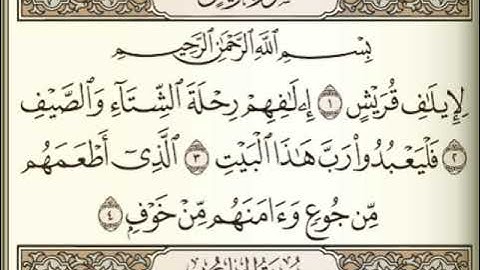 سورة قريش
بِسْمِ ٱللَّهِ ٱلرَّحْمَٰنِ ٱلرَّحِيمِ
لِإِيلَٰفِ قُرَيْشٍ ١ إِۦلَٰفِهِمْ رِحْلَةَ ٱلشِّتَآءِ وَٱلصَّيْفِ
٢ فَلْيَعْبُدُوا۟ رَبَّ هَٰذَا ٱلْبَيْتِ ٣ ٱلَّذِىٓ أَطْعَمَهُم
مِّن جُوعٍ وَءَامَنَهُم مِّنْ خَوْفٍۭ ٤
سورة الماعون